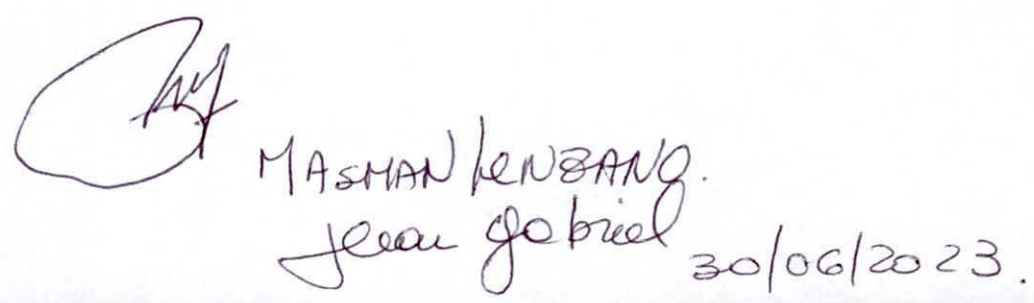 MASMAN KENZANO.
Jean Gabriel
30/06/2023.